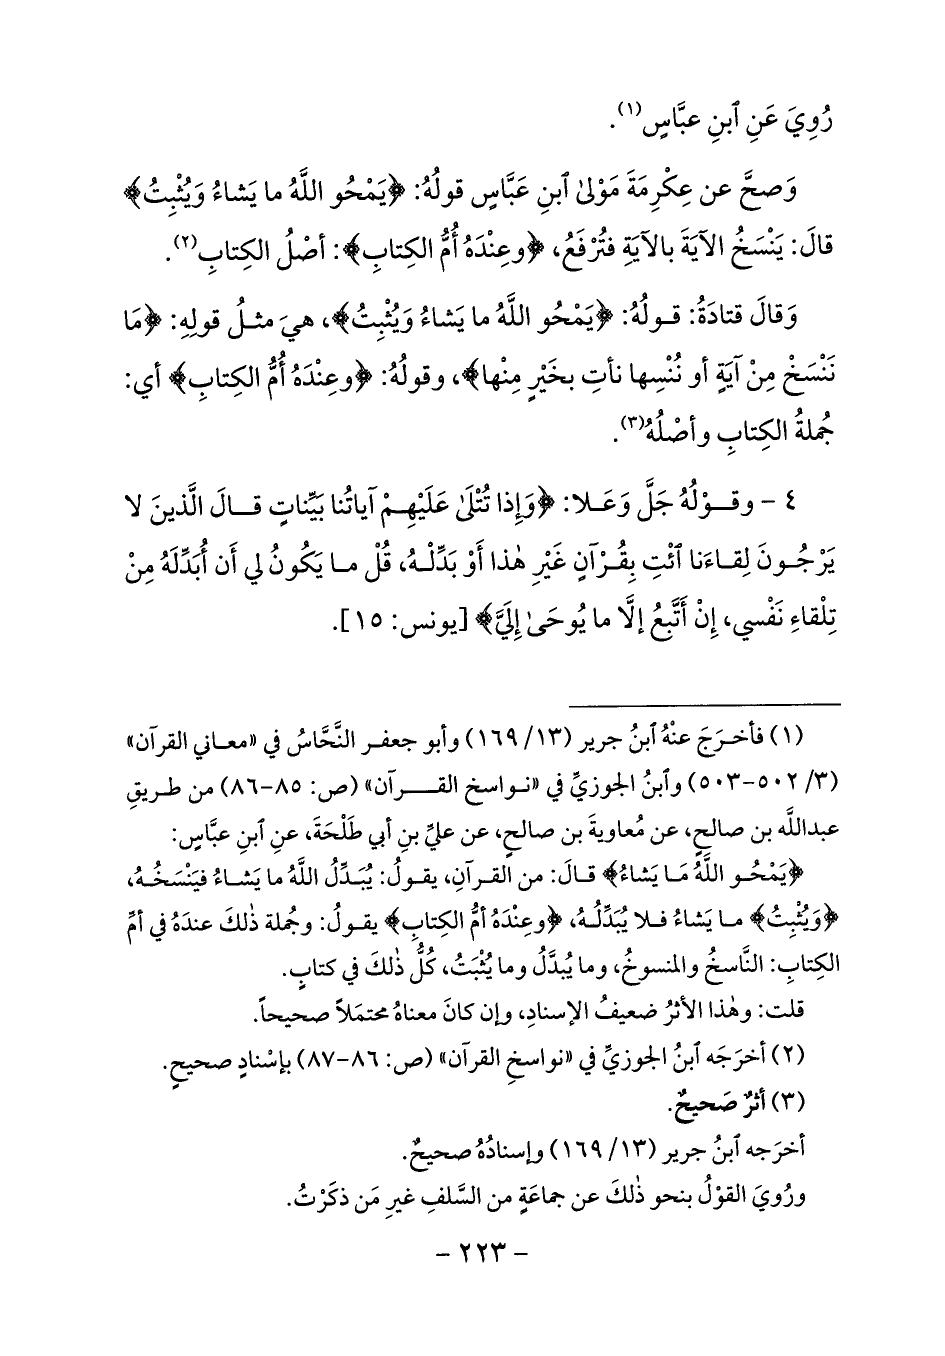 رُوِيَ عَنِ ٱبنِ عبَّاسٍ(١).
وَصحَّ عن عِكْرِمَةَ مَوْلىٰ ٱبنِ عَبَّاسٍ قولُهُ: ﴿يَمْحُو اللَّهُ ما يَشاءُ وَيُثْبِتُ﴾
قالَ: يَنْسَخُ الآيَةَ بالآيَةِ فتُرْفَعُ، ﴿وعِنْدَهُ أُمُّ الكِتابِ﴾: أصْلُ الكِتابِ(٢).
وَقالَ قتادَةُ: قولُهُ: ﴿يَمْحُو اللَّهُ ما يَشاءُ وَيُثْبِتُ﴾، هيَ مثلُ قولِهِ: ﴿مَا
نَنْسَخْ مِنْ آيَةٍ أو نُنْسِها نأتِ بخَيْرٍ مِنْها﴾، وقولُهُ: ﴿وعِنْدَهُ أُمُّ الكِتابِ﴾ أي:
جُملةُ الكِتابِ وأصْلُهُ(٣).
٤ - وقوْلُهُ جَلَّ وَعَلا: ﴿وَإِذا تُتْلَىٰ عَلَيْهِمْ آياتُنا بَيِّناتٍ قالَ الَّذينَ لا
يَرْجُونَ لِقاءَنا ٱئْتِ بِقُرْآنٍ غَيْرِ هٰذا أوْ بَدِّلْهُ، قُلْ ما يَكُونُ لي أَن أُبَدِّلَهُ مِنْ
تِلْقاءِ نَفْسي، إِنْ أَتَّبِعُ إلَّا ما يُوحَىٰ إِلَيَّ﴾ [يونس: ١٥].
(١) فأخرَجَ عنْهُ ٱبنُ جرير (١٣/ ١٦٩) وأبو جعفر النَّحَّاسُ في «معاني القرآن»
(٣/ ٥٠٢-٥٠٣) وٱبنُ الجوزيِّ في «نواسخ القرآن» (ص: ٨٥-٨٦) من طريقِ
عبداللَّه بن صالحٍ، عن مُعاويةَ بن صالحٍ، عن عليِّ بنِ أبي طَلْحَةَ، عنِ ٱبنِ عبَّاس:
﴿يَمْحُو اللَّهُ مَا يَشاءُ﴾ قالَ: من القرآنِ، يقولُ: يُبَدِّلُ اللَّهُ ما يَشاءُ فيَنْسَخُهُ،
﴿وَيُثْبِتُ﴾ ما يَشاءُ فلا يُبَدِّلُهُ، ﴿وعِنْدَهُ أمُّ الكِتابِ﴾ يقولُ: وجُملة ذٰلكَ عندَهُ في أمِّ
الكِتابِ: النَّاسخُ والمنسوخُ، وما يُبدَّلُ وما يُثْبَتُ، كُلُّ ذٰلكَ في كتابٍ.
قلت: وهٰذا الأثرُ ضعيفُ الإسنادِ، وإن كانَ معناهُ محتمَلاً صحيحاً.
(٢) أخرَجَه ٱبنُ الجوزيِّ في «نواسخِ القرآن» (ص: ٨٦-٨٧) بإسْنادٍ صحيحٍ.
(٣) أثرٌ صَحيحٌ.
أخرَجه ٱبنُ جرير (١٣/ ١٦٩) وإسنادُهُ صحيحٌ.
ورُويَ القوْلُ بنحو ذٰلكَ عن جماعَةٍ من السَّلفِ غيرِ مَن ذكَرْتُ.
- ٢٢٣ -